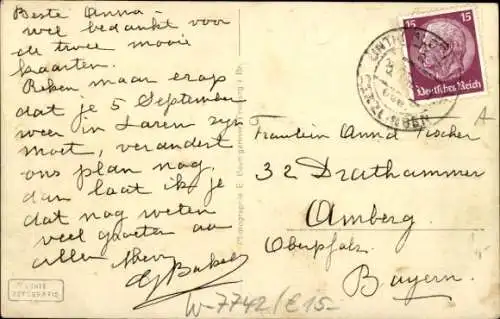 Beste Anna –
wel bedankt voor
de twee mooie
kaarten.
Reken, maar erop
dat je 5 September
weer in Laren zijn
moet, verandert
ons plan nog,
dan laat ik je
dat nog weten
veel groeten aan
allen
15 15
Deutsches Reich
Fräulein Anna Fischer
32 Drathammer
Amberg
Oberpfalz
Bayern.
W-7742/£15-
ECHTE
FOTOGRAFIE